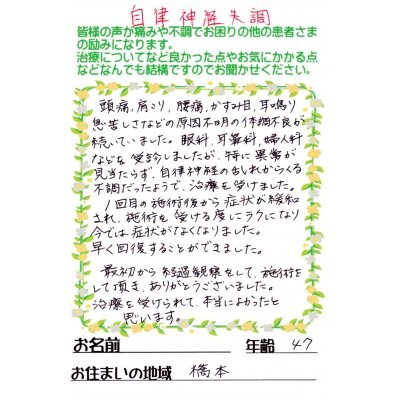 自律神経失調
皆様の声が痛みや不調でお困りの他の患者さま
の励みになります。
治療についてなど良かった点やお気にかかる点
などなんでも結構ですのでお聞かせください。
頭痛,肩こり,腰痛,かすみ目,耳鳴り
息苦しさなどの原因不明の体調不良が
続いていました。眼科,耳鼻科,婦人科
などを受診しましたが、特に異常が
見当たらず、自律神経の乱れからくる
不調だったようで、治療を受けました。
1回目の施術後から症状が緩和
され、施術を受ける度にラクになり
今では症状がなくなりました。
早く回復することができました。
最初から経過観察をして、施術を
して頂き、ありがとうございました。
治療を受けられて、本当によかったと
思います。
お名前 年齢 47
お住まいの地域 橋本